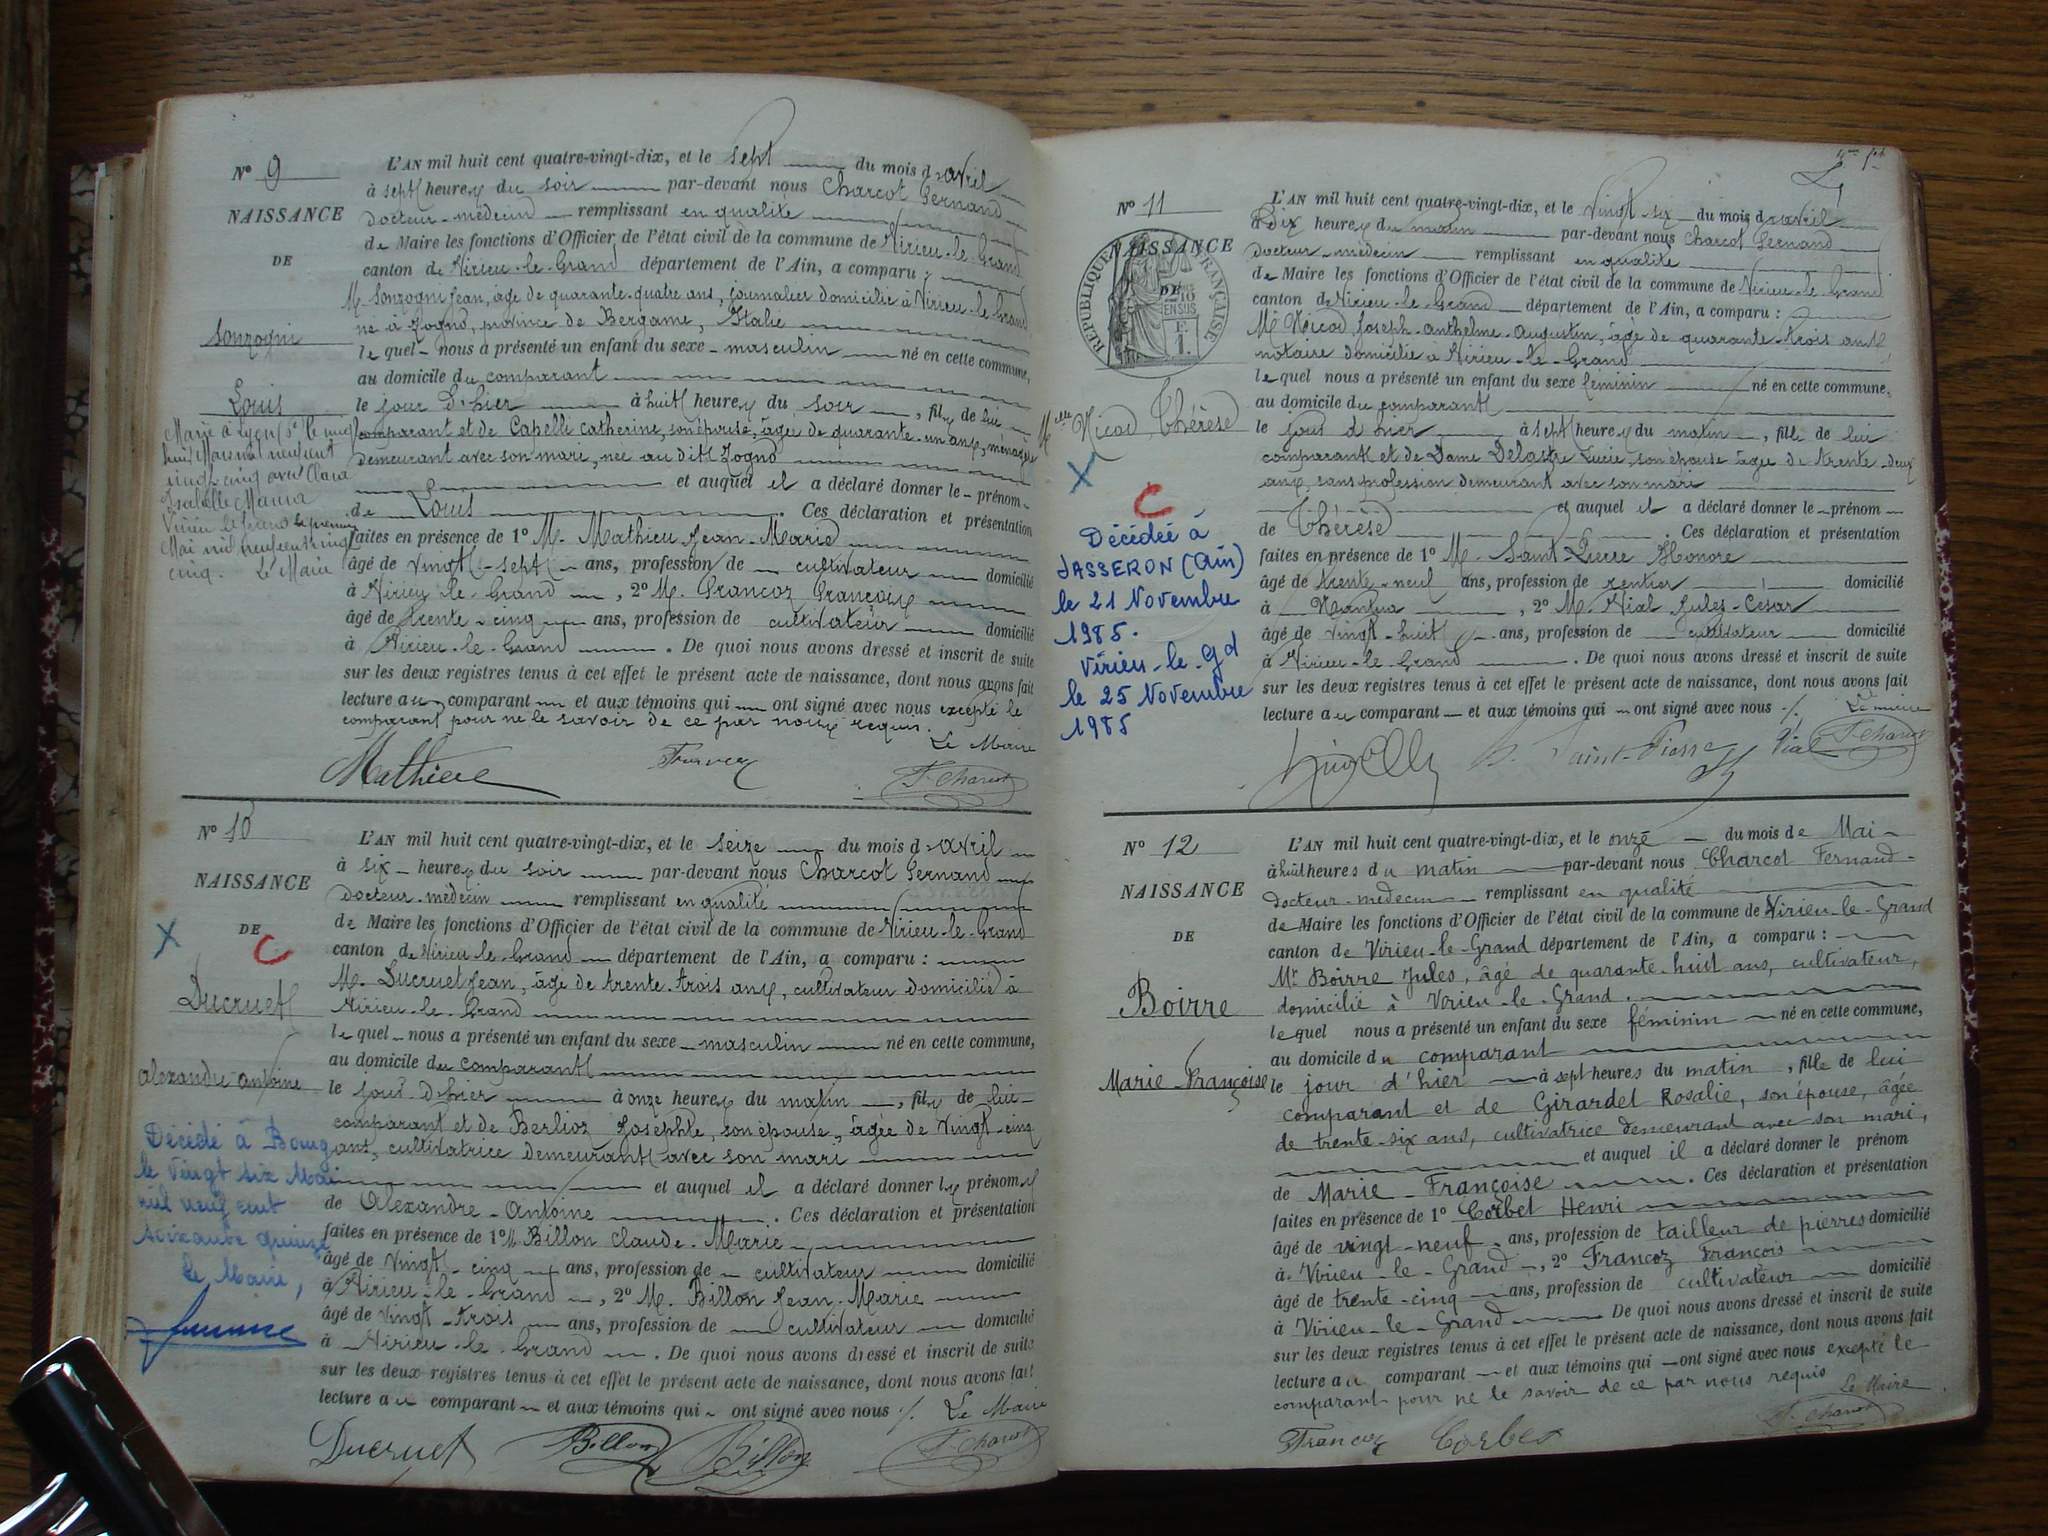 N° 9
NAISSANCE
DE
Sonzogni
Louis
Marié à Lyon
avec Clara
Isabelle
Virieu le Grand le premier
Mai mil neuf cent vingt
cinq. Le Maire
L'AN mil huit cent quatre-vingt-dix, et le sept du mois d'avril
à sept heures du soir par-devant nous Charcot Fernand
docteur-médecin remplissant en qualité
de Maire les fonctions d'Officier de l'état civil de la commune de Virieu-le-Grand
canton de Virieu-le-Grand département de l'Ain, a comparu :
M. Sonzogni Jean, âgé de quarante-quatre ans, journalier domicilié à Virieu-le-Grand
né à Zogno, province de Bergame, Italie
lequel nous a présenté un enfant du sexe masculin né en cette commune,
au domicile du comparant
le jour d'hier à huit heures du soir, fils de lui
comparant et de Capelli Catherine, son épouse, âgée de quarante-un ans, ménagère
demeurant avec son mari, née au dit Zogno
et auquel il a déclaré donner le prénom
de Louis. Ces déclaration et présentation
faites en présence de 1° M. Mathieu Jean-Marie
âgé de vingt-sept ans, profession de cultivateur domicilié
à Virieu-le-Grand, 2° M. Francoz François
âgé de trente-cinq ans, profession de cultivateur domicilié
à Virieu-le-Grand. De quoi nous avons dressé et inscrit de suite
sur les deux registres tenus à cet effet le présent acte de naissance, dont nous avons fait
lecture au comparant et aux témoins qui ont signé avec nous excepté le
comparant pour ne le savoir de ce par nous requis.
Le Maire
Mathieu Francoz F. Charcot
N° 10
NAISSANCE
DE
X C
Ducruet
Alexandre Antoine
Décédé à Bourg
le vingt six Mai
mil neuf cent
soixante quinze
Le Maire,
L'AN mil huit cent quatre-vingt-dix, et le seize du mois d'avril
à six heures du soir par-devant nous Charcot Fernand
docteur-médecin remplissant en qualité
de Maire les fonctions d'Officier de l'état civil de la commune de Virieu-le-Grand
canton de Virieu-le-Grand département de l'Ain, a comparu :
M. Ducruet Jean, âgé de trente-trois ans, cultivateur domicilié à
Virieu-le-Grand
lequel nous a présenté un enfant du sexe masculin né en cette commune,
au domicile du comparant
le jour d'hier à onze heures du matin, fils de lui
comparant et de Berlioz Josephte, son épouse, âgée de vingt-cinq
ans, cultivatrice demeurant avec son mari
et auquel il a déclaré donner les prénoms
de Alexandre-Antoine. Ces déclaration et présentation
faites en présence de 1° M. Billon Claude-Marie
âgé de vingt-cinq ans, profession de cultivateur domicilié
à Virieu-le-Grand, 2° M. Billon Jean-Marie
âgé de vingt-trois ans, profession de cultivateur domicilié
à Virieu-le-Grand. De quoi nous avons dressé et inscrit de suite
sur les deux registres tenus à cet effet le présent acte de naissance, dont nous avons fait
lecture au comparant et aux témoins qui ont signé avec nous ./. Le Maire
Ducruet Billon Billon F. Charcot
N° 11
NAISSANCE
DE
RÉPUBLIQUE FRANÇAISE
Melle Nicod, Thérèse
X
C
Décédée à
JASSERON (Ain)
le 21 Novembre
1985.
Virieu-le-Gd
le 25 Novembre
1985
L'AN mil huit cent quatre-vingt-dix, et le vingt-six du mois d'avril
à dix heures du matin par-devant nous Charcot Fernand
docteur-médecin remplissant en qualité
de Maire les fonctions d'Officier de l'état civil de la commune de Virieu-le-Grand
canton de Virieu-le-Grand département de l'Ain, a comparu :
Me Nicod Joseph-Anthelme-Augustin, âgé de quarante-trois ans
notaire domicilié à Virieu-le-Grand
lequel nous a présenté un enfant du sexe féminin né en cette commune,
au domicile du comparant
le jour d'hier à sept heures du matin, fille de lui
comparant et de Dame Delastre Lucie, son épouse âgée de trente-deux
ans, sans profession demeurant avec son mari
et auquel il a déclaré donner le prénom
de Thérèse. Ces déclaration et présentation
faites en présence de 1° M. Saint-Pierre Honoré
âgé de trente-neuf ans, profession de rentier domicilié
à Nantua, 2° M. Vial Jules-César
âgé de vingt-huit ans, profession de cultivateur domicilié
à Virieu-le-Grand. De quoi nous avons dressé et inscrit de suite
sur les deux registres tenus à cet effet le présent acte de naissance, dont nous avons fait
lecture au comparant et aux témoins qui ont signé avec nous ./. Le maire
H. Saint-Pierre Vial F. Charcot
N° 12
NAISSANCE
DE
Boirre
Marie-Françoise
L'AN mil huit cent quatre-vingt-dix, et le onze du mois de Mai
à huit heures du matin par-devant nous Charcot Fernand
docteur-médecin remplissant en qualité
de Maire les fonctions d'Officier de l'état civil de la commune de Virieu-le-Grand
canton de Virieu-le-Grand département de l'Ain, a comparu :
Mr Boirre Jules, âgé de quarante-huit ans, cultivateur,
domicilié à Virieu-le-Grand.
lequel nous a présenté un enfant du sexe féminin né en cette commune,
au domicile du comparant
le jour d'hier à sept heures du matin, fille de lui
comparant et de Girardet Rosalie, son épouse, âgée
de trente-six ans, cultivatrice demeurant avec son mari,
et auquel il a déclaré donner le prénom
de Marie-Françoise. Ces déclaration et présentation
faites en présence de 1° Corbet Henri
âgé de vingt-neuf ans, profession de tailleur de pierres domicilié
à Virieu-le-Grand, 2° Francoz François
âgé de trente-cinq ans, profession de cultivateur domicilié
à Virieu-le-Grand De quoi nous avons dressé et inscrit de suite
sur les deux registres tenus à cet effet le présent acte de naissance, dont nous avons fait
lecture au comparant et aux témoins qui ont signé avec nous excepté le
comparant pour ne le savoir de ce par nous requis
Le Maire
Francoz Corbet F. Charcot